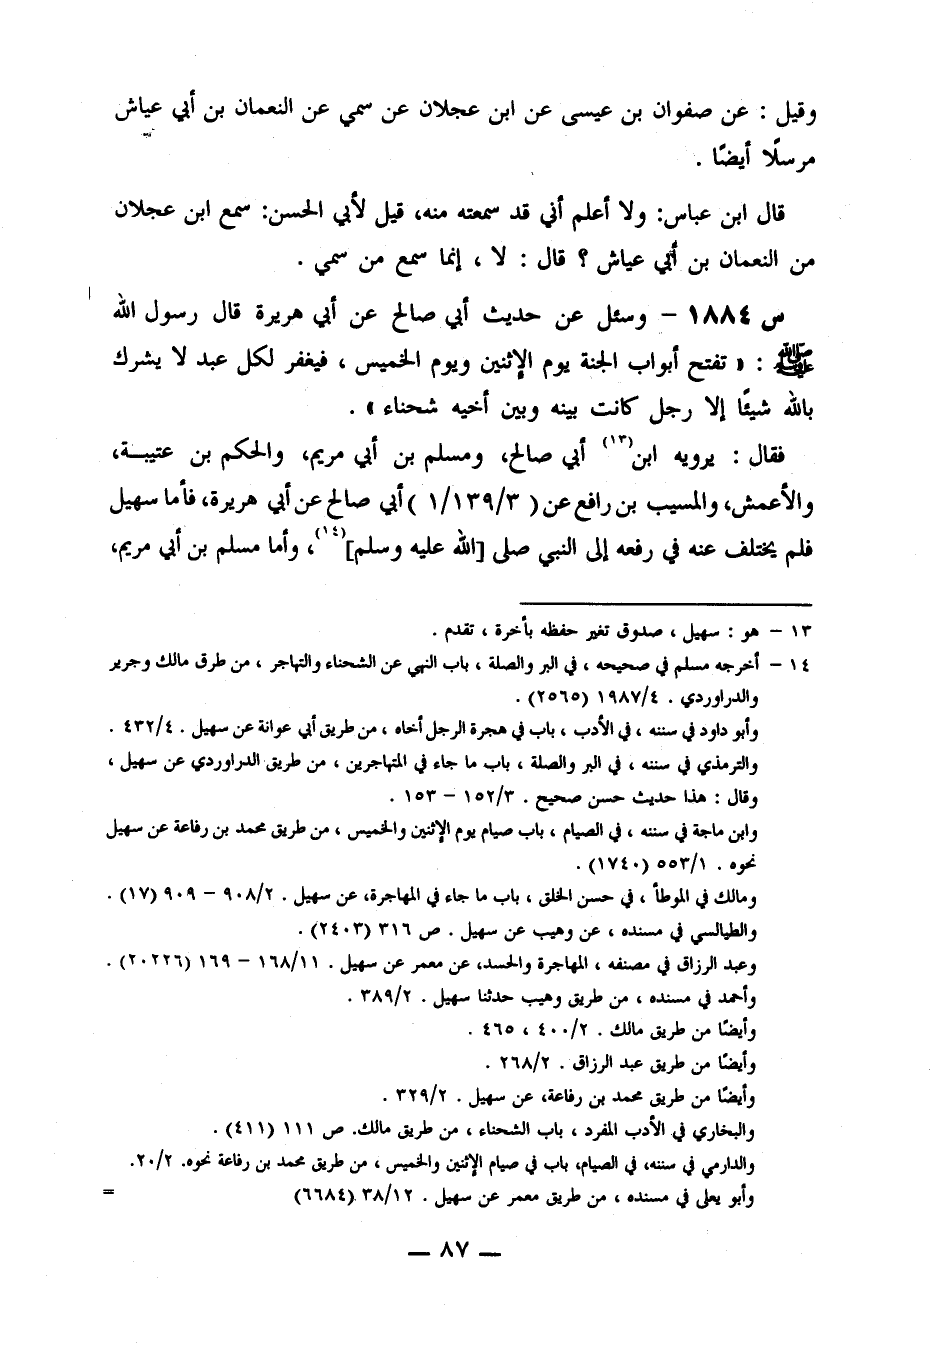 وقيل : عن صفوان بن عيسى عن ابن عجلان عن سمي عن النعمان بن أبي عياش
مرسلًا أيضًا .
قال ابن عباس: ولا أعلم أني قد سمعته منه، قيل لأبي الحسن: سمع ابن عجلان
من النعمان بن أبي عياش ؟ قال : لا ، إنما سمع من سمي .
س ١٨٨٤ – وسئل عن حديث أبي صالح عن أبي هريرة قال رسول الله
ﷺ : « تفتح أبواب الجنة يوم الإثنين ويوم الخميس ، فيغفر لكل عبد لا يشرك
بالله شيئًا إلا رجل كانت بينه وبين أخيه شحناء » .
فقال : يرويه ابن(١٣) أبي صالح، ومسلم بن أبي مريم، والحكم بن عتيبـة،
والأعمش، والمسيب بن رافع عن ( ١/١٣٩/٣ ) أبي صالح عن أبي هريرة، فأما سهيل
فلم يختلف عنه في رفعه إلى النبي صلى [الله عليه وسلم](١٤)، وأما مسلم بن أبي مريم،
١٣ – هو : سهيل ، صدوق تغير حفظه بأخرة ، تقدم .
١٤ – أخرجه مسلم في صحيحه ، في البر والصلة ، باب النهي عن الشحناء والتهاجر ، من طرق مالك وجرير
والدراوردي . ١٩٨٧/٤ (٢٥٦٥) .
وأبو داود في سننه ، في الأدب ، باب في هجرة الرجل أخاه ، من طريق أبي عوانة عن سهيل . ٤٣٢/٤ .
والترمذي في سننه ، في البر والصلة ، باب ما جاء في المتهاجرين ، من طريق الدراوردي عن سهيل ،
وقال : هذا حديث حسن صحيح . ١٥٢/٣ – ١٥٣ .
وابن ماجة في سننه ، في الصيام ، باب صيام يوم الإثنين والخميس ، من طريق محمد بن رفاعة عن سهيل
نحوه . ٥٥٣/١ (١٧٤٠) .
ومالك في الموطأ ، في حسن الخلق ، باب ما جاء في المهاجرة، عن سهيل . ٩٠٨/٢ – ٩٠٩ (١٧) .
والطيالسي في مسنده ، عن وهيب عن سهيل . ص ٣١٦ (٢٤٠٣) .
وعبد الرزاق في مصنفه ، المهاجرة والحسد، عن معمر عن سهيل . ١٦٨/١١ – ١٦٩ (٢٠٢٢٦) .
وأحمد في مسنده ، من طريق وهيب حدثنا سهيل . ٣٨٩/٢ .
وأيضًا من طريق مالك . ٤٠٠/٢ ، ٤٦٥ .
وأيضًا من طريق عبد الرزاق . ٢٦٨/٢ .
وأيضًا من طريق محمد بن رفاعة، عن سهيل . ٣٢٩/٢ .
والبخاري في الأدب المفرد ، باب الشحناء ، من طريق مالك. ص ١١١ (٤١١) .
والدارمي في سننه، في الصيام، باب في صيام الإثنين والخميس ، من طريق محمد بن رفاعة نحوه. ٢٠/٢.
وأبو يعلى في مسنده ، من طريق معمر عن سهيل . ٣٨/١٢ (٦٦٨٤) =
— ٨٧ —